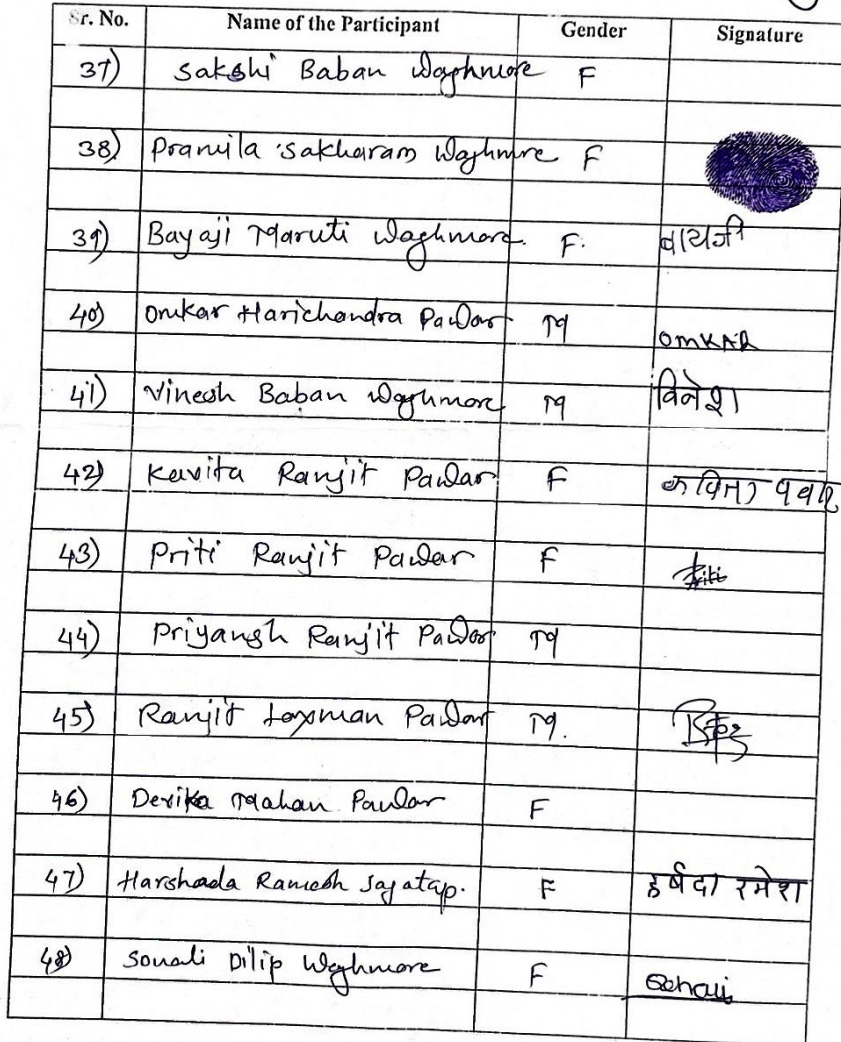 Sr. No. Name of the Participant Gender Signature
37) Sakshi Baban Waghmore F
38) Pramila Sakharam Waghmre F
39) Bayaji Maruti Waghmore. F. बायजी
40) Omkar Harichandra Pawar M OMKAR
41) Vinesh Baban Waghmore M विनेश
42) Kavita Ranjit Pawar F कविता पवार
43) Priti Ranjit Pawar F Priti
44) Priyansh Ranjit Pawar M
45) Ranjit Laxman Pawar M.
46) Devika Mahan Pawar F
47) Harshada Ramesh Jagatap. F हर्षदा रमेश
48) Sonali Dilip Waghmore F